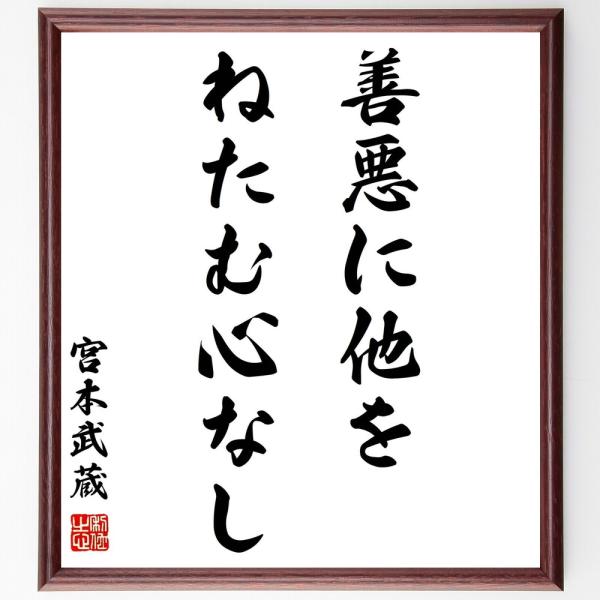 善悪に他を
ねたむ心なし
宮本武蔵